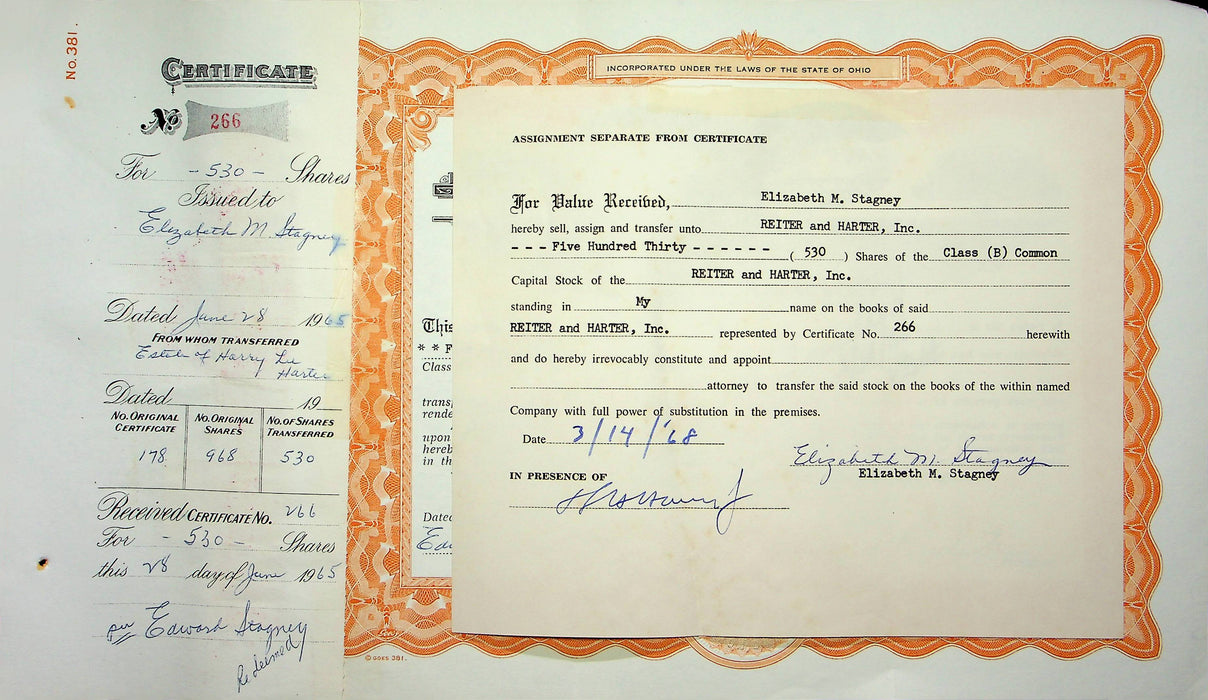 No. 381.
CERTIFICATE
No 266
For - 530 - Shares
Issued to
Elizabeth M Stagney
Dated June 28 1965
FROM WHOM TRANSFERRED
Estate of Harry Lee
Harter
Dated 19
NO. ORIGINAL CERTIFICATE
NO. ORIGINAL SHARES
NO. OF SHARES TRANSFERRED
178 968 530
Received CERTIFICATE NO. 266
For - 530 - Shares
this 28 day of June 1965
per Edward Stagney
Redeemed
INCORPORATED UNDER THE LAWS OF THE STATE OF OHIO
This
* * F
Class
trans
rende
upon
hereb
in th
Dated
© GOES 381.
ASSIGNMENT SEPARATE FROM CERTIFICATE
For Value Received, Elizabeth M. Stagney
hereby sell, assign and transfer unto REITER and HARTER, Inc.
- - - Five Hundred Thirty - - - - - - ( 530 ) Shares of the Class (B) Common
Capital Stock of the REITER and HARTER, Inc.
standing in My name on the books of said
REITER and HARTER, Inc. represented by Certificate No. 266 herewith
and do hereby irrevocably constitute and appoint
attorney to transfer the said stock on the books of the within named
Company with full power of substitution in the premises.
Date 3/14/'68
Elizabeth M. Stagney
Elizabeth M. Stagney
IN PRESENCE OF